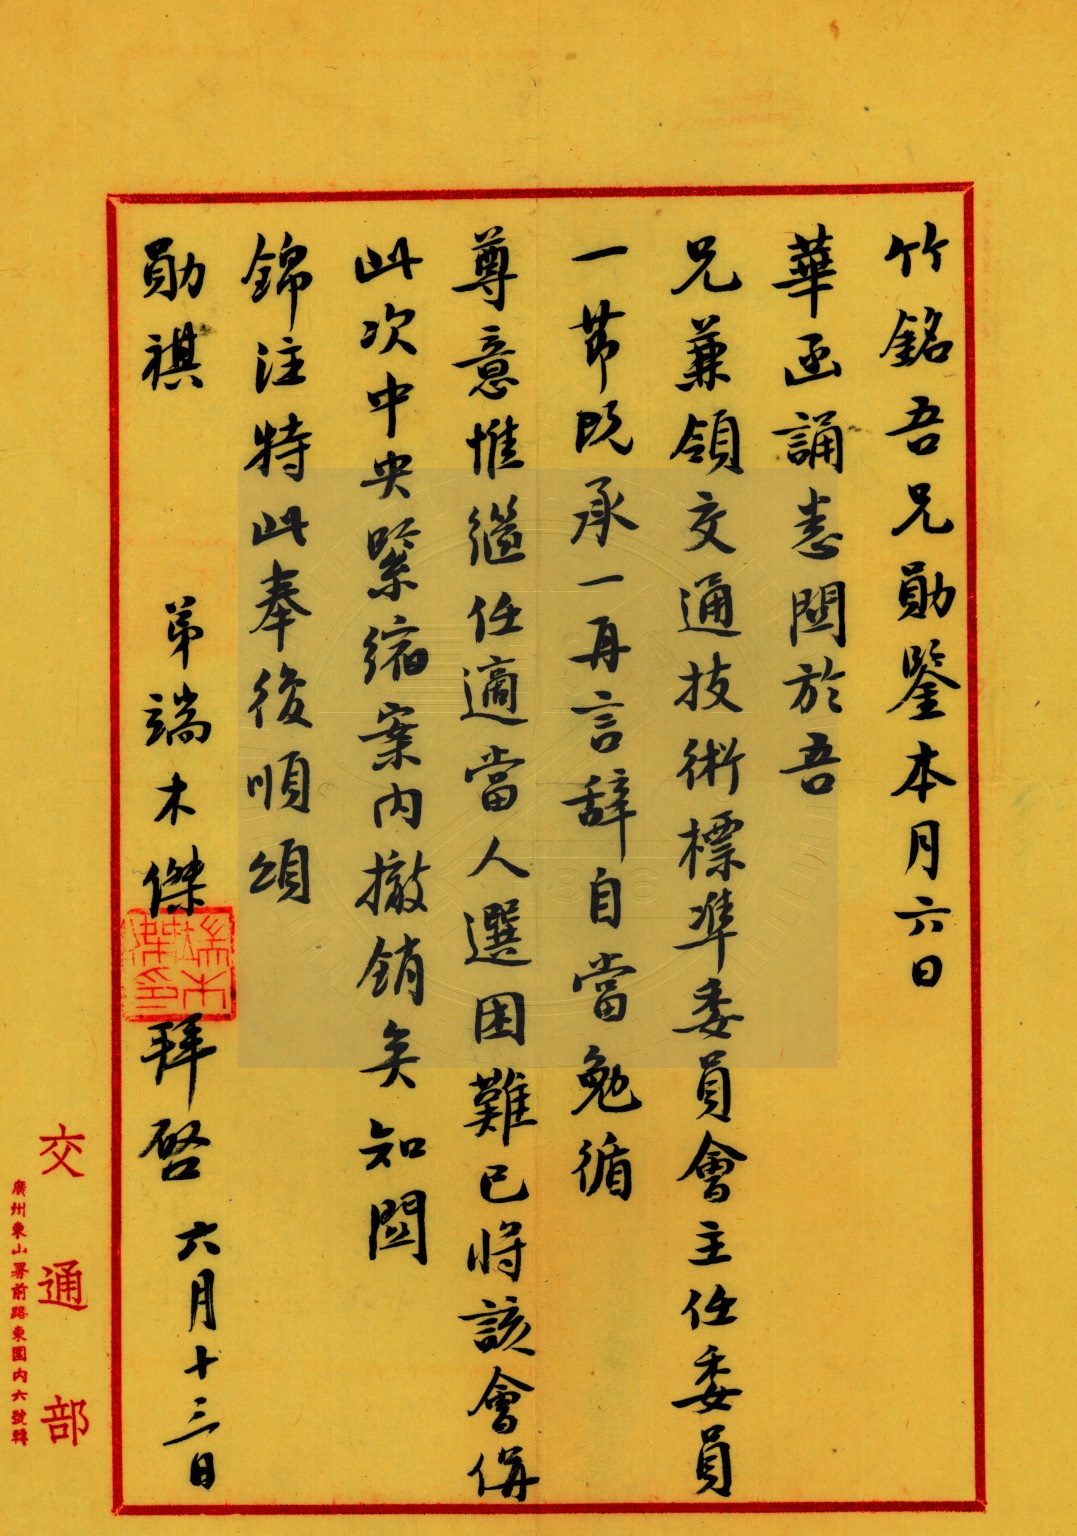 竹銘吾兄勛鑒本月六日
華函誦悉關於吾
兄兼領交通技術標準委員會主任委員
一節既承一再言辭自當勉循
尊意惟繼任適當人選困難已將該會併
此次中央緊縮案內撤銷矣知關
錦注特此奉復順頌
勛祺
弟端木傑拜啓六月十三日
端木傑印
交通部
廣州東山署前路東園內六號